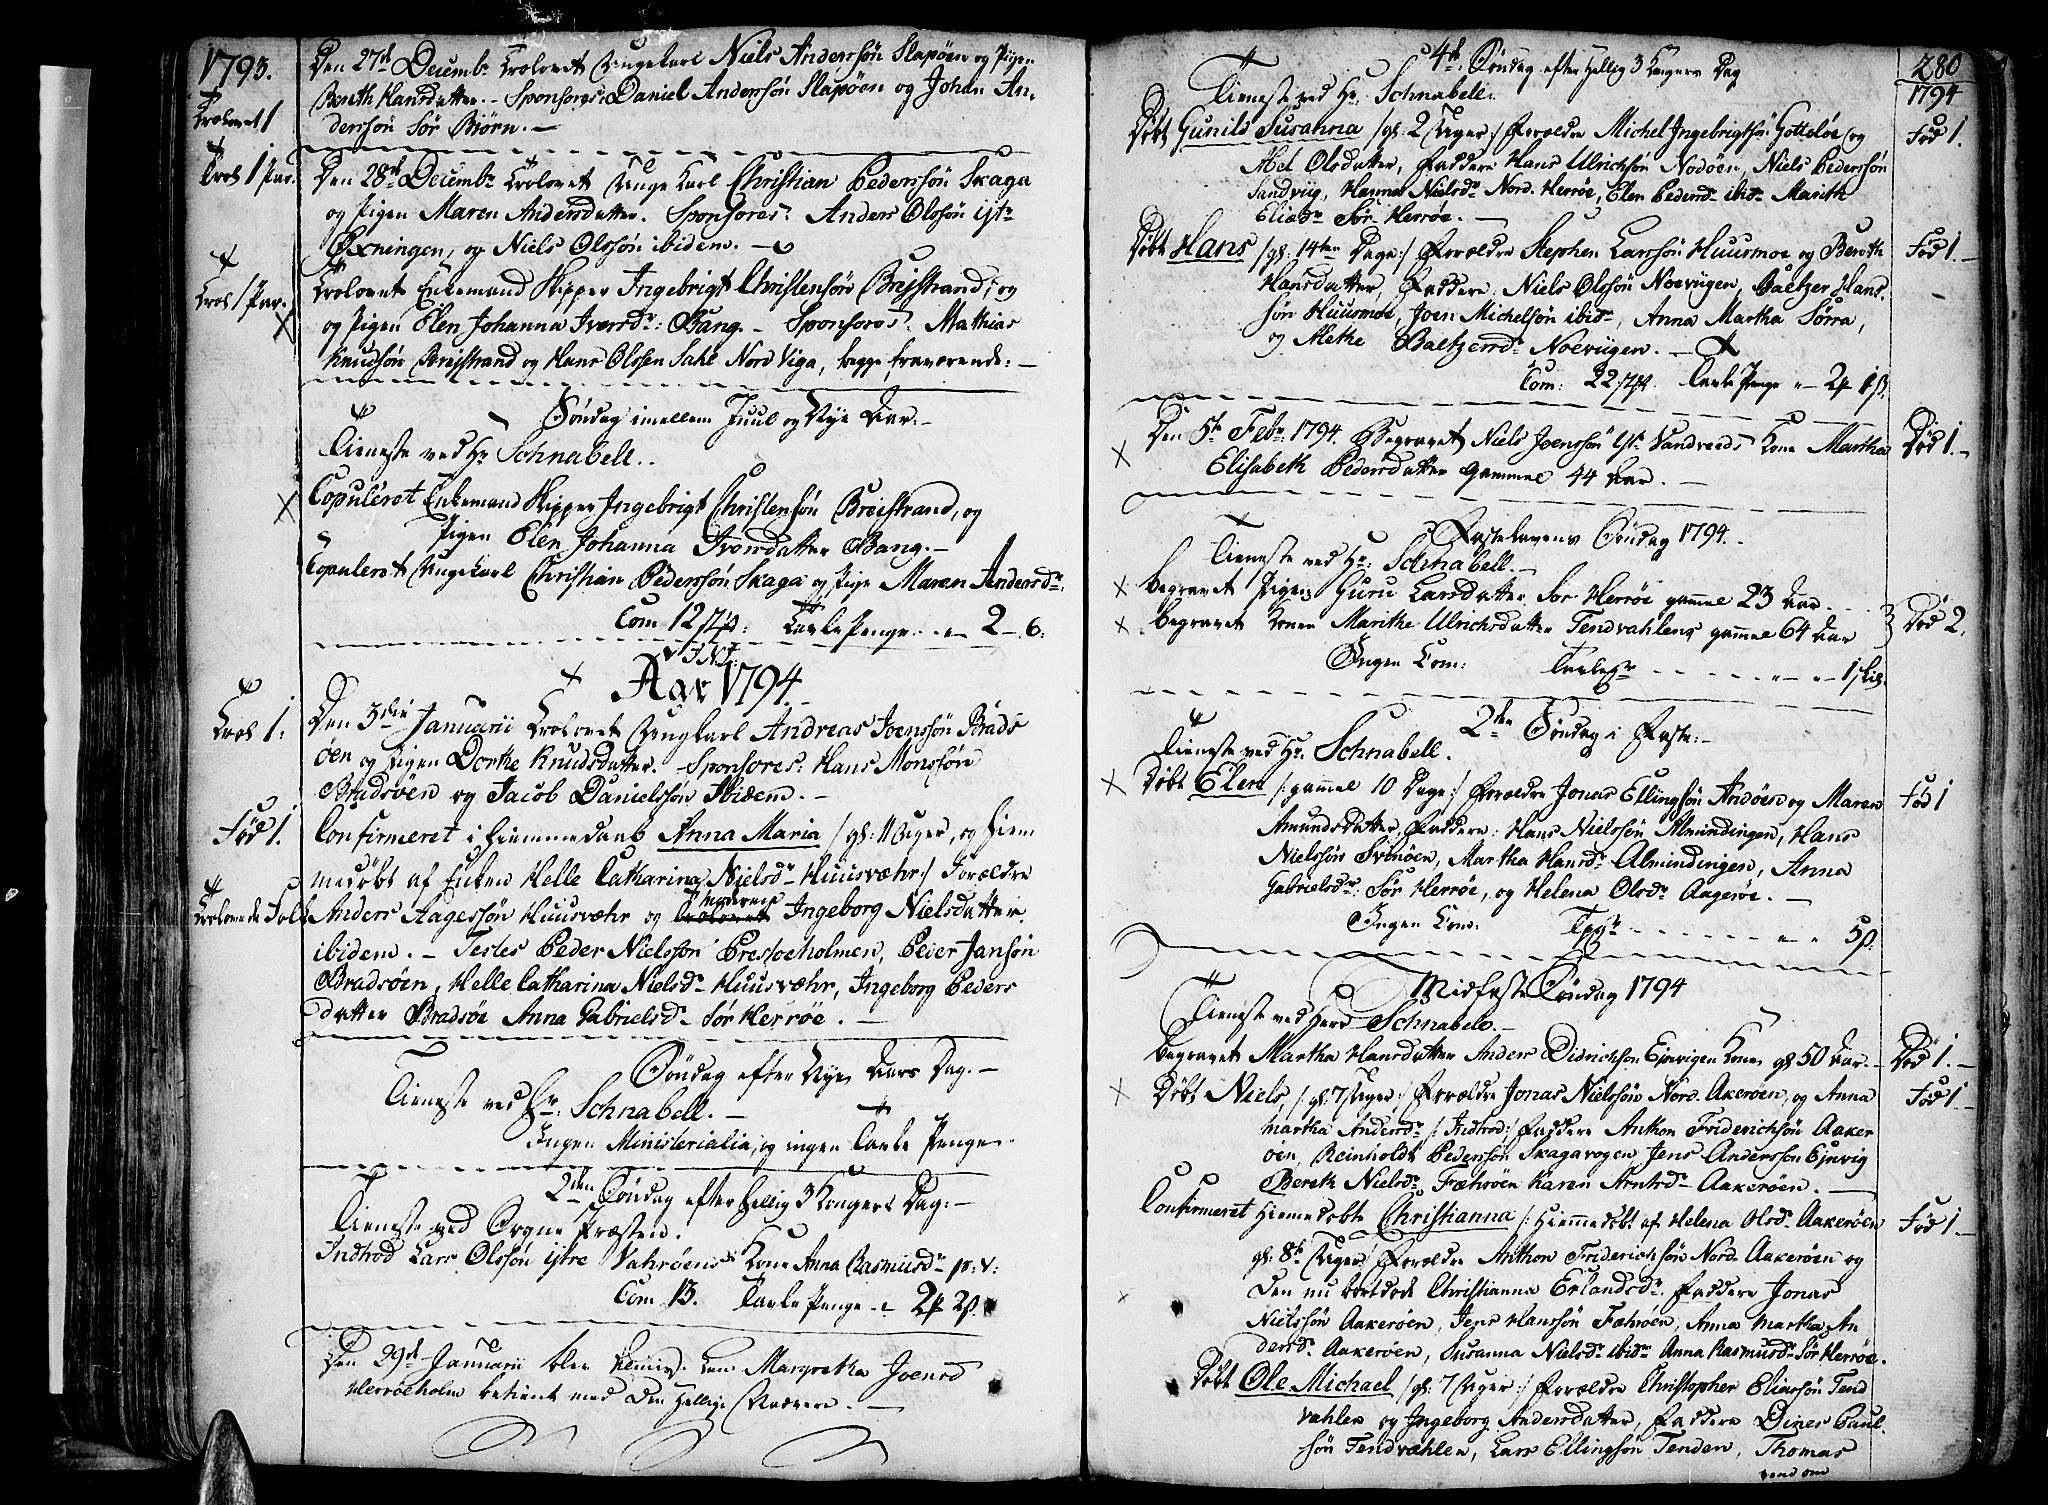 1793.
Den 27de Decembr Trolovet Ungekarl Niels Anderssøn Slapøen og Pigen
Bereth Hansdatter. – Sponsores: Daniel Anderssøn Slapøen og Johan An-
derssøn Sør Biørn. –
Trolovet 1
Trol 1 Par.
Den 28de Decembr Trolovet Unge Karl Christian Pederssøn Skaga
og Pigen Maren Andersdatter. Sponsores: Anders Olssøn
Øxningen, og Niels Olssøn ibidem. –
Trol 1 Par.
Trolovet Enkemand Skipper Ingebrigt Christensøn Breistrand, og
og Pigen Elen Johanna Iversdr: Bang. – Sponsores. Mathias
Knudsøn Breistrand og Hans Olssen Nord Viga, begge fraværende: –
Søndag imellem Juul og Nye Aar. –
Tieneste ved Hr Schnabell.
Copuleret Enkemand Skipper Ingebrigt Christensøn Breistrand, og
Pigen Elen Johanna Iversdatter Bang. –
Copuleret Ungekarl Christian Pederssøn Skaga og Pige Maren Andersdr.
Com 12 Tavle Penge 2 – 6:
I.N.J.
Aar 1794.
Trol 1:
Den 3die Januarii Trolovet Ungkarl Andreas Joenssøn Brads
øen og Pigen Dorthe Knudsdatter. Sponsores: Hans Monssøn
Bradsøen og Jacob Danielssøn Ibidem. –
Fød 1.
Confirmeret i Hiemmedaab Anna Maria /: gl: 11 Uger, og Hiem
medøbt af Enken Helle Catharina Nielsdr Huusvæhr :/ Forældre
Trolovede Folk
Anders Aagessøn Huusvæhr og Ingeborg Nielsdatter
ibidem. – Testes Peder Nielssøn Prestøeholmen, Peter Jansøn
Bradsøen, Helle Catharina Nielsdr Huusvæhr, Ingeborg Peders
datter Bradsøe Anna Gabrielsdr Sør Herrøe. –
Søndag efter Nye Aars Dag. –
Tieneste ved Hr: Schnabell. –
Ingen Ministerialia, og ingen Tavle Penge.
2den Søndag efter Hellig 3 Kongers Dag: –
Tieneste ved Sogne Præsten.
Indtrod Lars Olssøn Vahrøens Kone Anna Rasmusdr p: v:
Com 13. Tavle Penge 2
Den 29de Januarii blev Margretha Joensd
Herrøeholm betient med Den Hellige Nadvere. –
280
1794
4de Søndag efter Hellig 3 Kongers Dag
Tieneste ved Hr: Schnabell.
Døbt Gunild Susanna /: gl: 2 Uger :/ Forældre Michel Ingebrigtsøn Gotteløe og
Fød 1.
Abel Olsdatter, Faddere Hans Ulrichsøn Nodøen, Niels Pederssøn
Sandviig, Hanna Nielsdr Nord Herrøe, Elen Pedersd ibid Marith
Eliædr Sør Herrøe. –
Døbt Hans /: gl: 14ten Dage :/ Forældre Stephen Larssøn Huusmoe og Bereth
Fød 1. –
Hansdatter, Faddere: Niels Olssøn Noeviigen, Baltzer Hans
søn Huusmoe, Joen Michelsøn ibidr, Anna Martha Sørra,
og Methe Baltzersdr Noeviigen. –
Com: 22 Tavle Penge
Den 5te Febr: 1794. Begravet Niels Joenssøn Vandveeds Kone Martha
Død 1. –
Elisabeth Pedersdatter gammel 44 Aar. –
Fastelavens Søndag 1794.
Tieneste ved Hr: Schnabell.
Begravet Pigen Guru Larsdatter Sør Herrøe gammel 23 Aar
Begravet Konen Marithe Ulrichsdatter Tendvahlens gammel 64 Aar
Død 2.
Ingen Com:
2den Søndag i Faste: –
Tieneste ved Hr. Schnabell.
Døbt Elen /: gammel 10 Dage :/ Forældre Jonas Ellingsøn Andøen og Maren
Fød 1
Amundsdatter, Faddere: Hans Nielssøn Almindingen, Hans
Nielssøn Svinøen, Martha Hansdr Almindingen, Anna
Gabrielsdr: Sør Herrøe, og Helena Olsdr Aagerøe. –
Ingen Com: 5
Midfaste Søndag 1794
Tieneste ved Herr Schnabell. –
Begravet Martha Hansdatter Anders Didrichsøn Ejvigen Kone gl 50 Aar. –
Død 1. –
Døbt Niels, /: gl: 7 Uger :/ Forældre Jonas Nielssøn Nord Akerøen, og Anna
Fød 1 –
Martha Andersdr /: Indtrod :/ Faddere Anthon Friderichsøn Aaker
øen, Reinholdt Pederssøn Skagavogen Jens Anderssøn Ejevig
Bereth Nielsdr Fæhrøen Karen Arntsdr Aakerøen. –
Confirmeret Hiemedøbte Christianna /: Hiemmedøbt af Helena Olsdr Aakerøen
Fød 1 –
gl: 8te Uger :/ Forældre Anthon Friderichsøn Nord Aakerøen og
Den nu bortdøde Christianna Erlandsdr. Faddere Jonas
Nielssøn Aakerøen, Jens Hanssøn Fæhrøen, Anna Martha An
dersdr. Aakerøen, Susanna Nielsdr ibidr Anna Rasmusdr Sør Herrøe.
Døbt Ole Michael /: gl: 7 Uger :/ Forældre Christopher Eliassøn Tend
vahlen og Ingeborg Andersdatter, Faddere Dines Paul
søn Tendvahlen, Lars Ellingsøn Tenden, Thomas
vend om